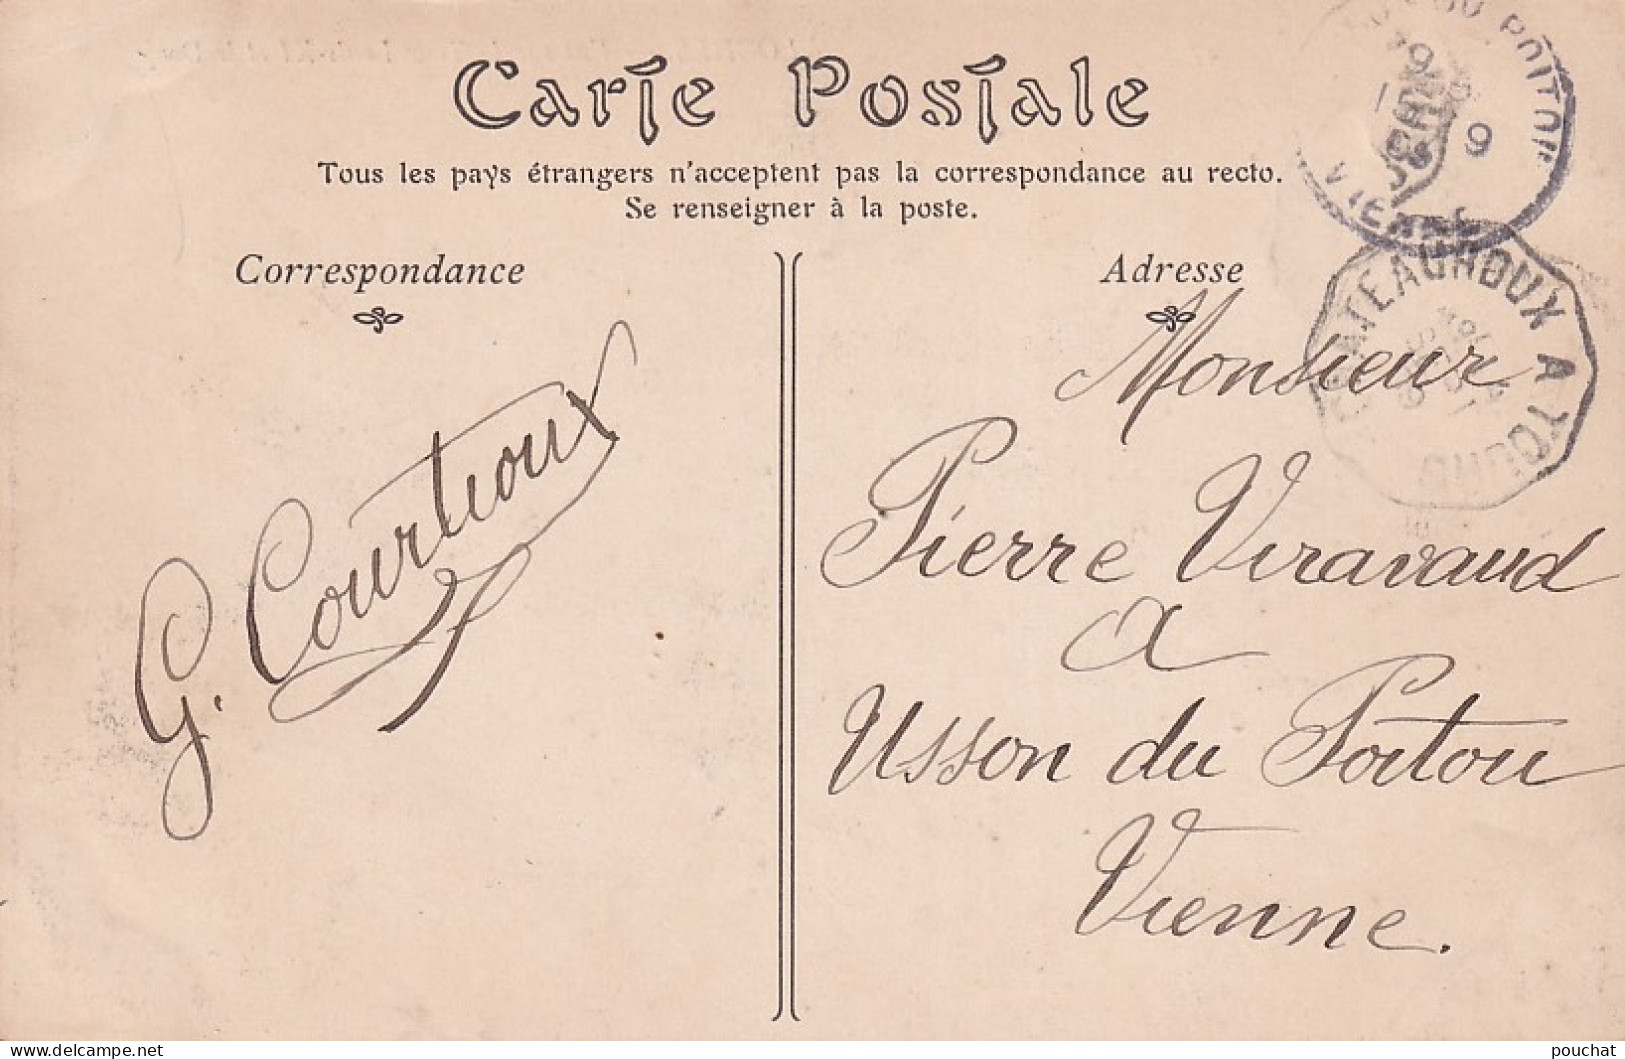 Carte Postale
Tous les pays étrangers n'acceptent pas la correspondance au recto.
Se renseigner à la poste.
Correspondance
Adresse
G. Courtioux
Monsieur
Pierre Viravaud
A
Usson du Poitou
Vienne.
DU POITOU
9
VIENNE
CHATEAUROUX A TOURS
delcampe.net
pouchat